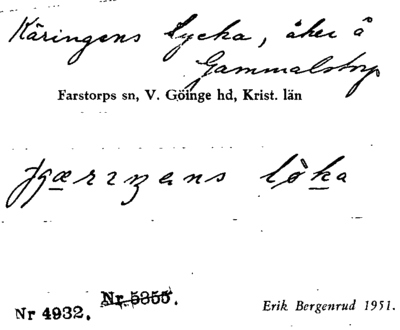 Käringens lycka, åker å
Gammalstorp
Farstorps sn, V. Göinge hd, Krist. län
löka
Nr 4932. Nr 5355.
Erik Bergenrud 1951.